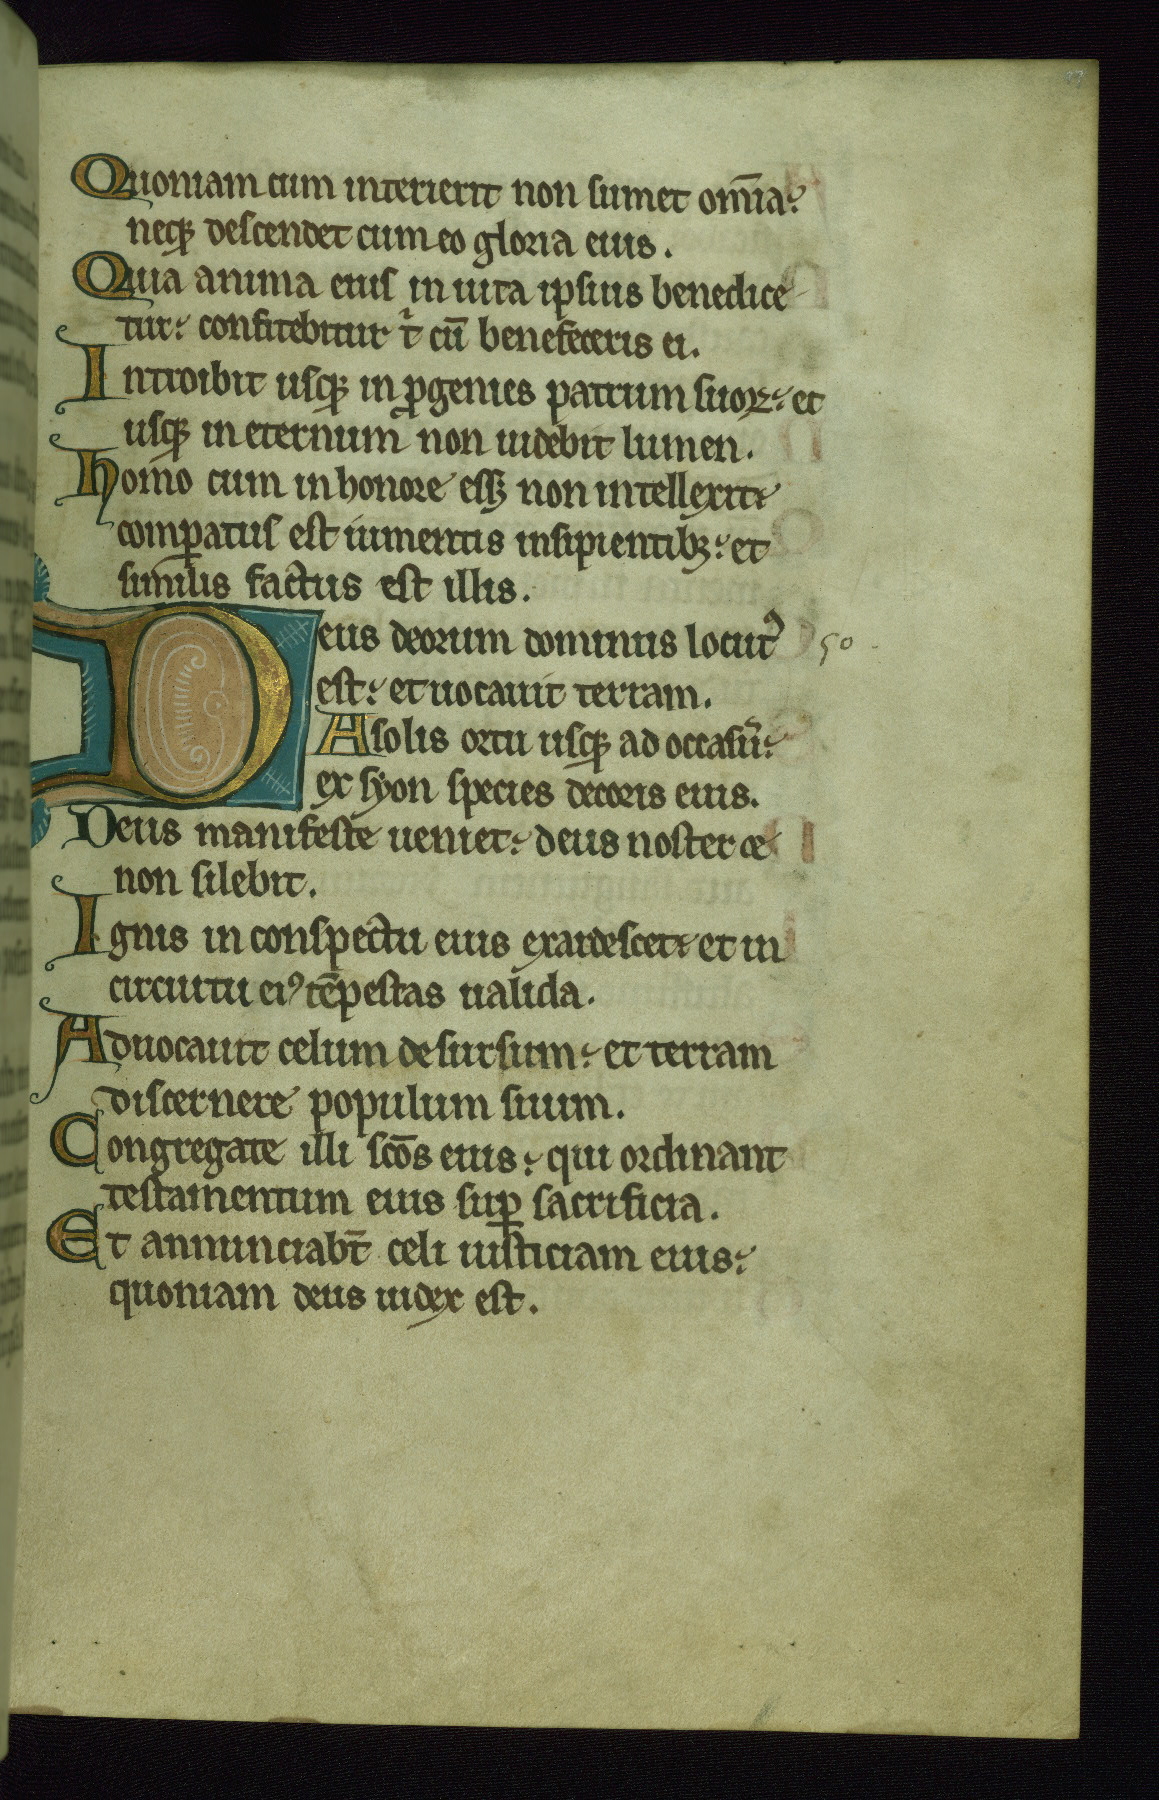 Quoniam cum interierit non sumet om̄ia:
neq; descendet cum eo gloria eius.
Quia anima eius in uita ipsius benedice
tur: confitebitur t̉ cū benefeceris ei.
Introibit usq; in ꝓgenies patrum suoꝝ: et
usq; in eternum non uidebit lumen.
homo cum in honore eēt non intellexit:
comꝑatus est iumentis insipientibꝫ: et
similis factus est illis.
Deus deorum dominus locutꝰ 50
est: et uocauit terram.
A solis ortu usq; ad occasū:
ex syon species decoris eius.
Deus manifeste ueniet: deus noster et
non silebit.
Ignis in conspectu eius exardescet: et in
circuitu eiꝰ tēpestas ualida.
Aduocauit celum desursum: et terram
discernere populum suum.
Congregate illi sc̄os eius: qui ordinant
testamentum eius suꝑ sacrificia.
Et annunciabt̄ celi iusticiam eius:
quoniam deus iudex est.